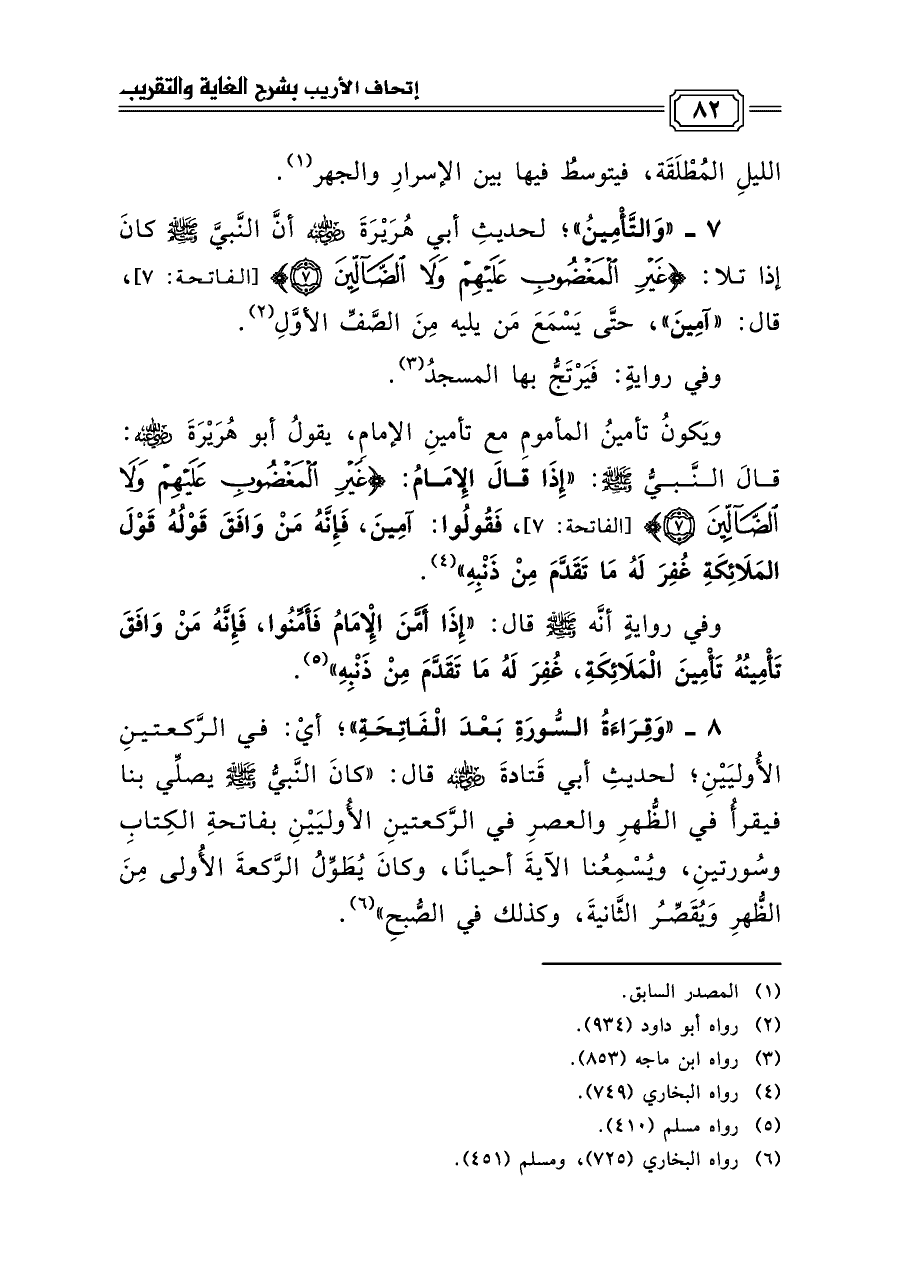 إتحاف الأريب بشرح الغاية والتقريب
٨٢
الليلِ المُطْلَقَة، فيتوسطُ فيها بين الإسرارِ والجهر(١).
٧ ـ «وَالتَّأْمِينُ»؛ لحديثِ أبي هُرَيْرَةَ ﵁ أنَّ النَّبيَّ ﷺ كانَ
إذا تلا: ﴿غَيْرِ ٱلْمَغْضُوبِ عَلَيْهِمْ وَلَا ٱلضَّآلِّينَ ٧﴾ [الفاتحة: ٧]،
قال: «آمِينَ»، حتَّى يَسْمَعَ مَن يليه مِنَ الصَّفِّ الأوَّلِ(٢).
وفي روايةٍ: فَيَرْتَجُّ بها المسجدُ(٣).
ويَكونُ تأمينُ المأمومِ مع تأمينِ الإمامِ، يقولُ أبو هُرَيْرَةَ ﵁:
قالَ النَّبيُّ ﷺ: «إِذَا قالَ الإمَامُ: ﴿غَيْرِ ٱلْمَغْضُوبِ عَلَيْهِمْ وَلَا
ٱلضَّآلِّينَ ٧﴾ [الفاتحة: ٧]، فَقُولُوا: آمِينَ، فَإِنَّهُ مَنْ وَافَقَ قَوْلُهُ قَوْلَ
المَلَائِكَةِ غُفِرَ لَهُ مَا تَقَدَّمَ مِنْ ذَنْبِهِ»(٤).
وفي روايةٍ أنَّه ﷺ قال: «إِذَا أَمَّنَ الْإِمَامُ فَأَمِّنُوا، فَإِنَّهُ مَنْ وَافَقَ
تَأْمِينُهُ تَأْمِينَ الْمَلَائِكَةِ، غُفِرَ لَهُ مَا تَقَدَّمَ مِنْ ذَنْبِهِ»(٥).
٨ ـ «وَقِرَاءَةُ السُّورَةِ بَعْدَ الْفَاتِحَةِ»؛ أيْ: في الرَّكعتينِ
الأُوليَيْنِ؛ لحديثِ أبي قَتادةَ ﵁ قال: «كانَ النَّبيُّ ﷺ يصلِّي بنا
فيقرأُ في الظُّهرِ والعصرِ في الرَّكعتينِ الأُوليَيْنِ بفاتحةِ الكِتابِ
وسُورتينِ، ويُسْمِعُنا الآيةَ أحيانًا، وكانَ يُطَوِّلُ الركعةَ الأُولى مِنَ
الظُّهرِ وَيُقَصِّرُ الثَّانيةَ، وكذلك في الصُّبحِ»(٦).
(١) المصدر السابق.
(٢) رواه أبو داود (٩٣٤).
(٣) رواه ابن ماجه (٨٥٣).
(٤) رواه البخاري (٧٤٩).
(٥) رواه مسلم (٤١٠).
(٦) رواه البخاري (٧٢٥)، ومسلم (٤٥١).